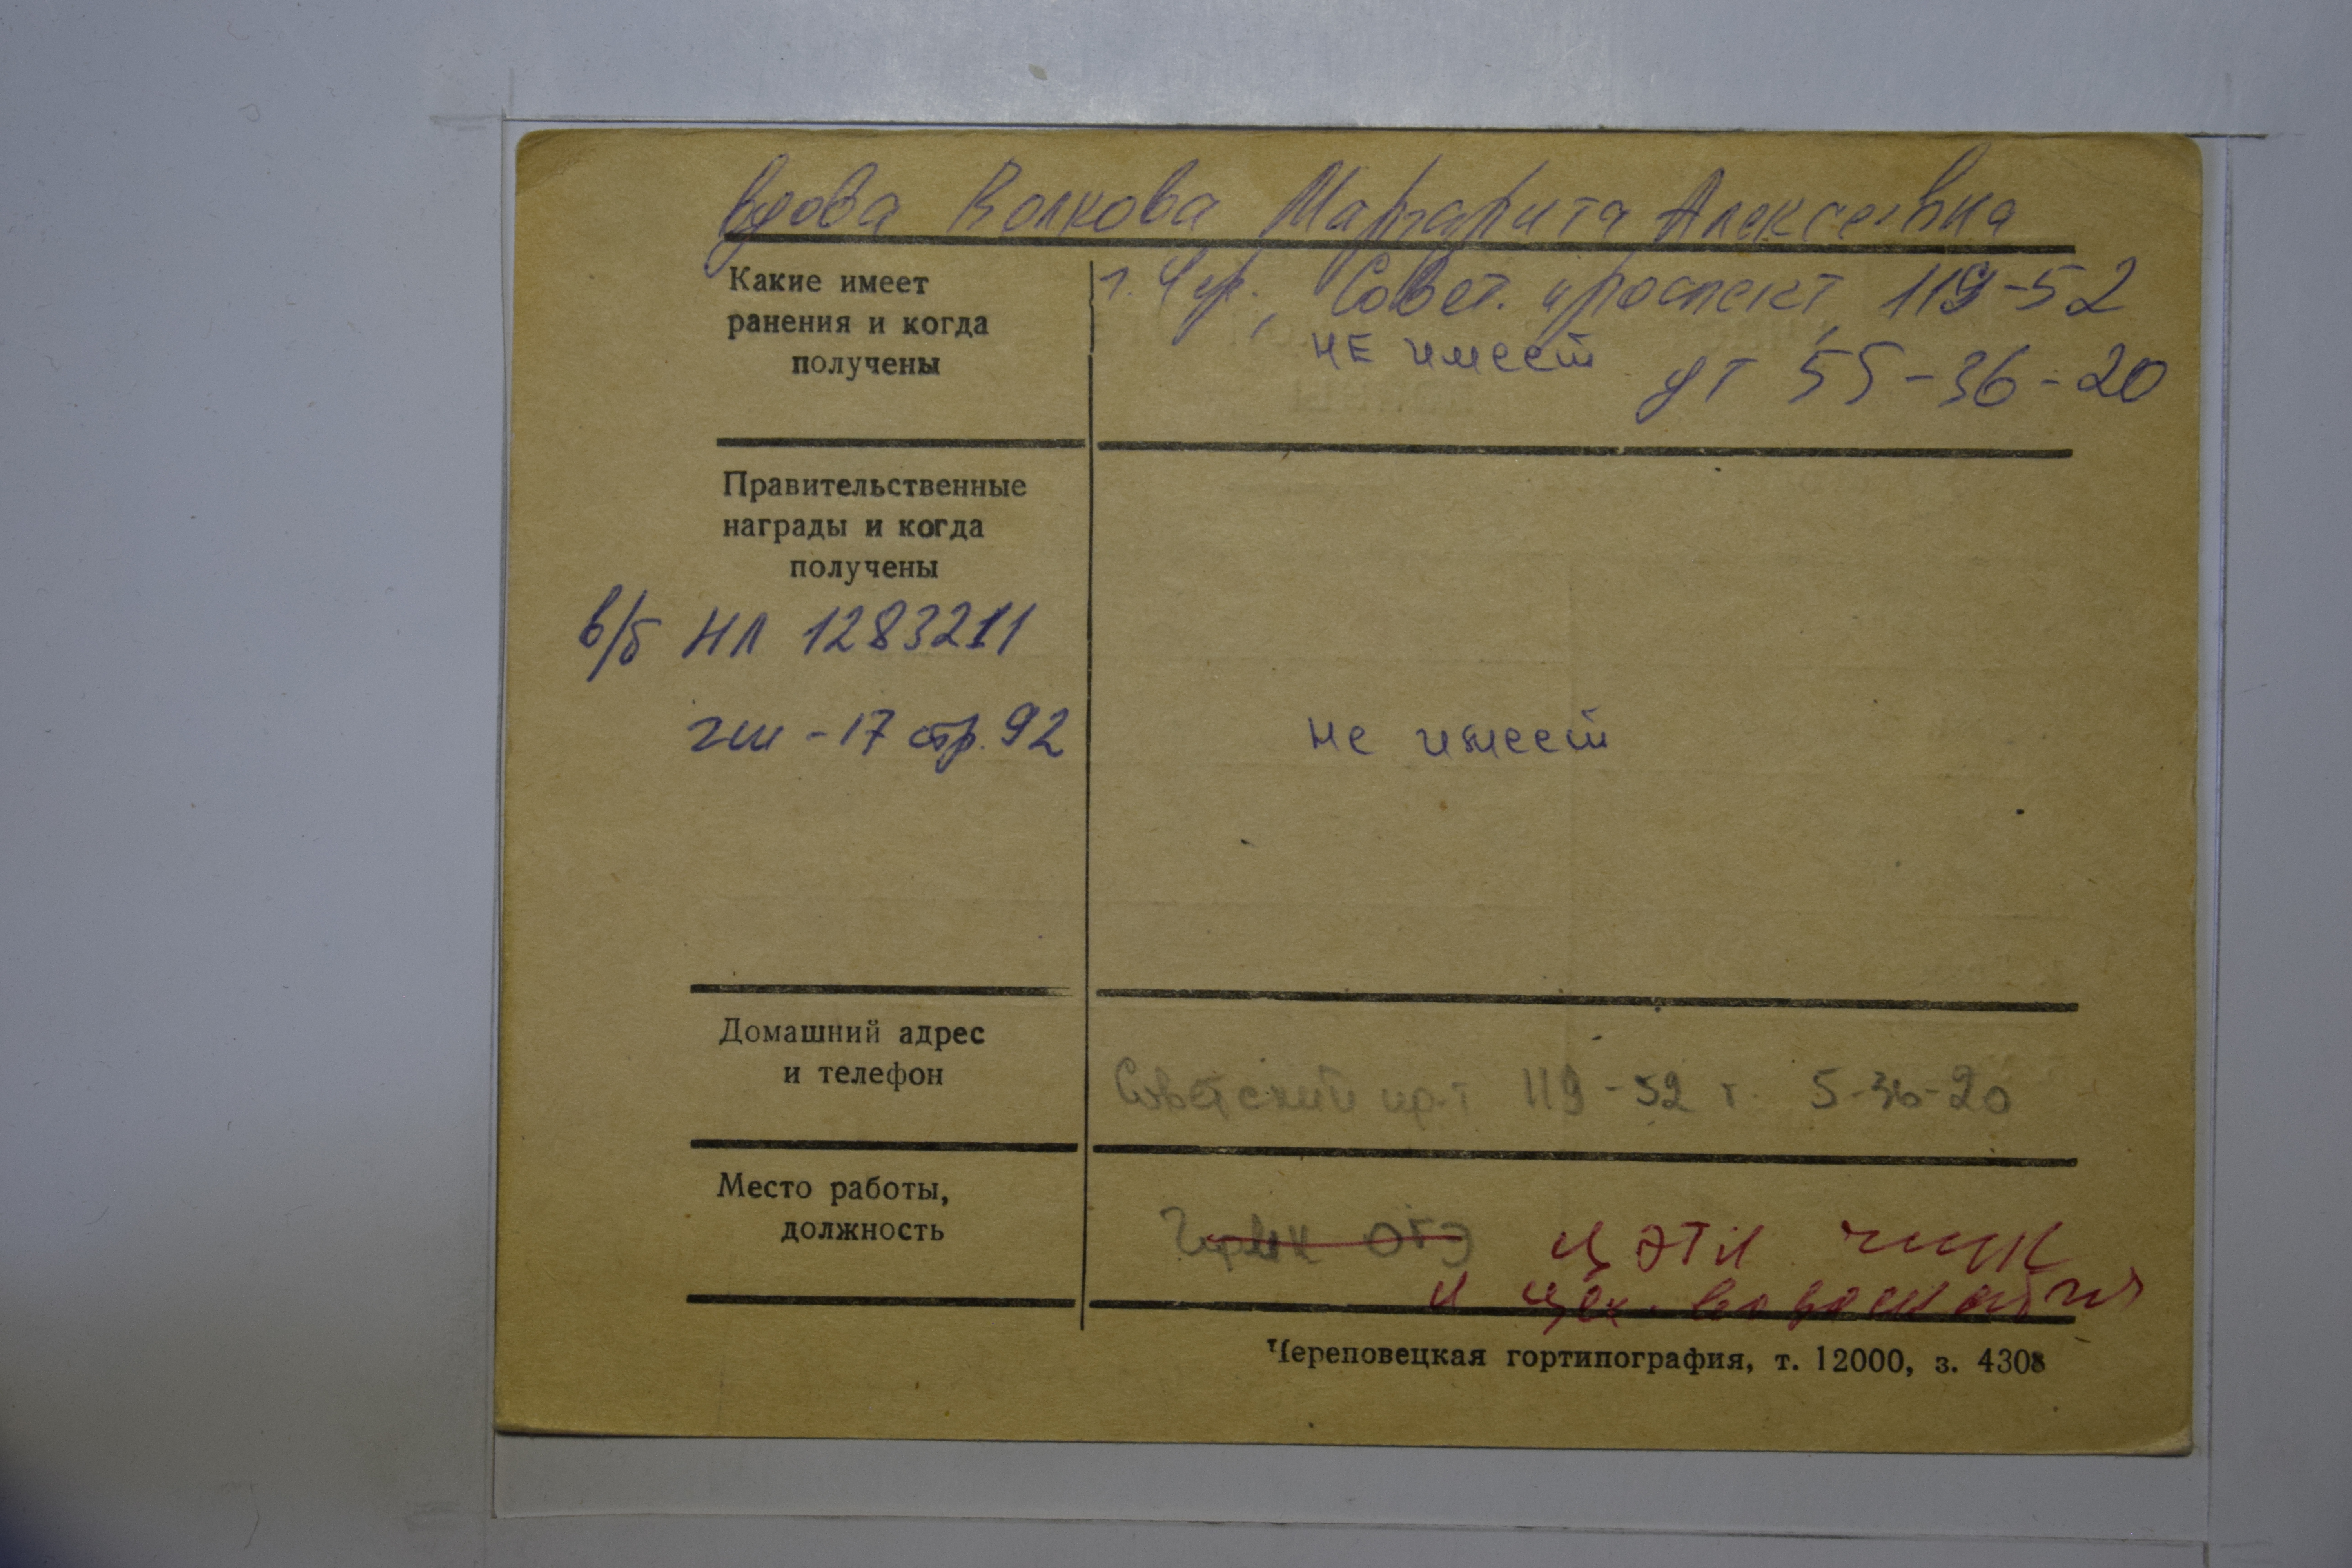 вдова Волкова Маргарита Алексеевна
Какие имеет
ранения и когда
получены
г. Чер., Совет. проспект, 119-52
не имеет
дт 55-36-20
Правительственные
награды и когда
получены
в/б НЛ 1283211
-17 стр. 92
не имеет
Домашний адрес
и телефон
Советский пр-т 119-52 т. 5-36-20
Место работы,
должность
ЦЭТЛ
и цех
Череповецкая гортипография, т. 12000, з. 4308